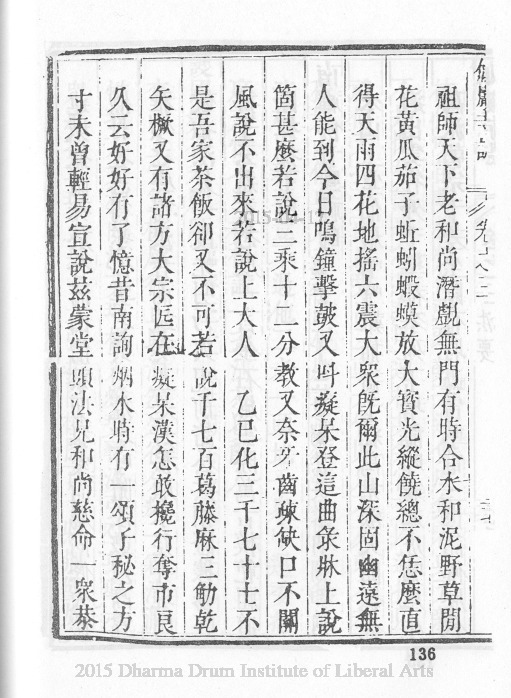 祖師天下老和尚潛覷無門有時合水和泥野草閒
花黃瓜茄子蚯蚓蝦蟆放大寶光縱饒總不恁麼直
得天雨四花地搖六震大衆旣爾此山深固幽遠無
人能到今日鳴鐘擊鼓又呌癡呆登這曲彔牀上說
箇甚麼若說三乘十二分教又奈牙齒疎缺口不關
風說不出來若說上大人 乙巳化三千七十士不
是吾家茶飯卻又不可若說千七百葛藤麻三觔乾
矢橛又有諸方大宗匠在癡呆漢怎敢攙行奪市良
久云好好有了憶昔南詢烟水時有一頌子秘之方
寸未曾輕易宣說茲蒙堂頭法兄和尚慈命一衆恭
136
2015 Dharma Drum Institute of Liberal Arts